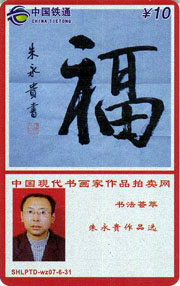 中国铁通
CHINA TIETONG
¥10
福
朱永贵書
中国现代书画家作品拍卖网
书法荟萃
朱永贵作品选
SHLPTD-wz07-6-31